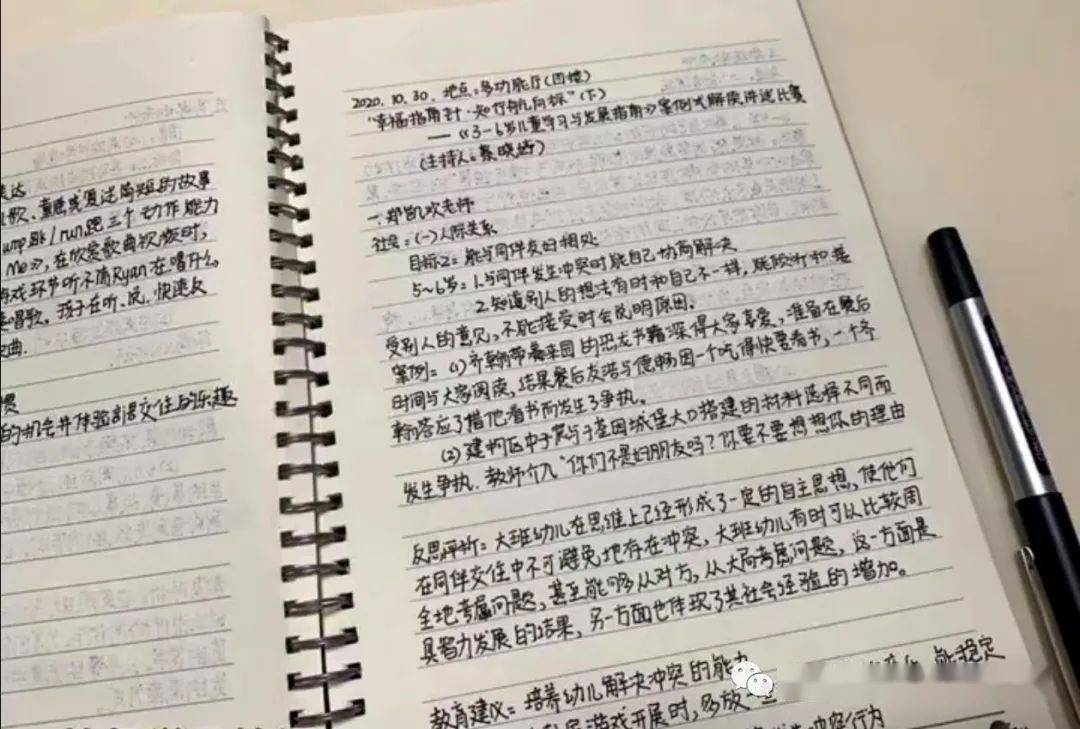 表达
儿歌、童谣或复述简短的故事
jump跳/run跑三个动作能力
Me》,在欣赏歌曲视频时,
游戏环节听不清Ryan在唱什么
唱歌,孩子在听、说、快速反
歌曲.
惯
的机会并体验到语交往的乐趣
2020.10.30. 地点:多功能厅(四楼)
"幸福指南针·知行航向标"(下)
——《3-6岁儿童学习与发展指南》案例式解读讲述比赛
(主持人:蔡晓娇)
一.郑凯欢老师
社会:(一)人际关系
目标2:能与同伴友好相处
5~6岁:1.与同伴发生冲突时能自己协商解决
2.知道别人的想法有时和自己不一样,能倾听和接
受别人的意见,不能接受时会说明原因.
案例:(1)齐翰带着来园的恐龙书籍深得大家喜爱,准备在餐后
时间与大家阅读,结果餐后友浩与德畅因一个吃得快要看书,一个齐
翰答应了借他看书而发生了争执.
(2)建构区中子宸与子荃因城堡大口搭建的材料选择不同而
发生争执.教师介入"你们不是好朋友吗?你要不要想想你的理由
反思评析:大班幼儿在思维上已经形成了一定的自主思想,使他们
在同伴交往中不可避免地存在冲突,大班幼儿有时可以比较周
全地考虑问题,甚至能够从对方,从大局考虑问题,这一方面是
具智力发展的结果,另一方面也体现了其社会经验的增加。
教育建议:培养幼儿解决冲突的能力 能稳定
游戏开展时,多放
冲突行为